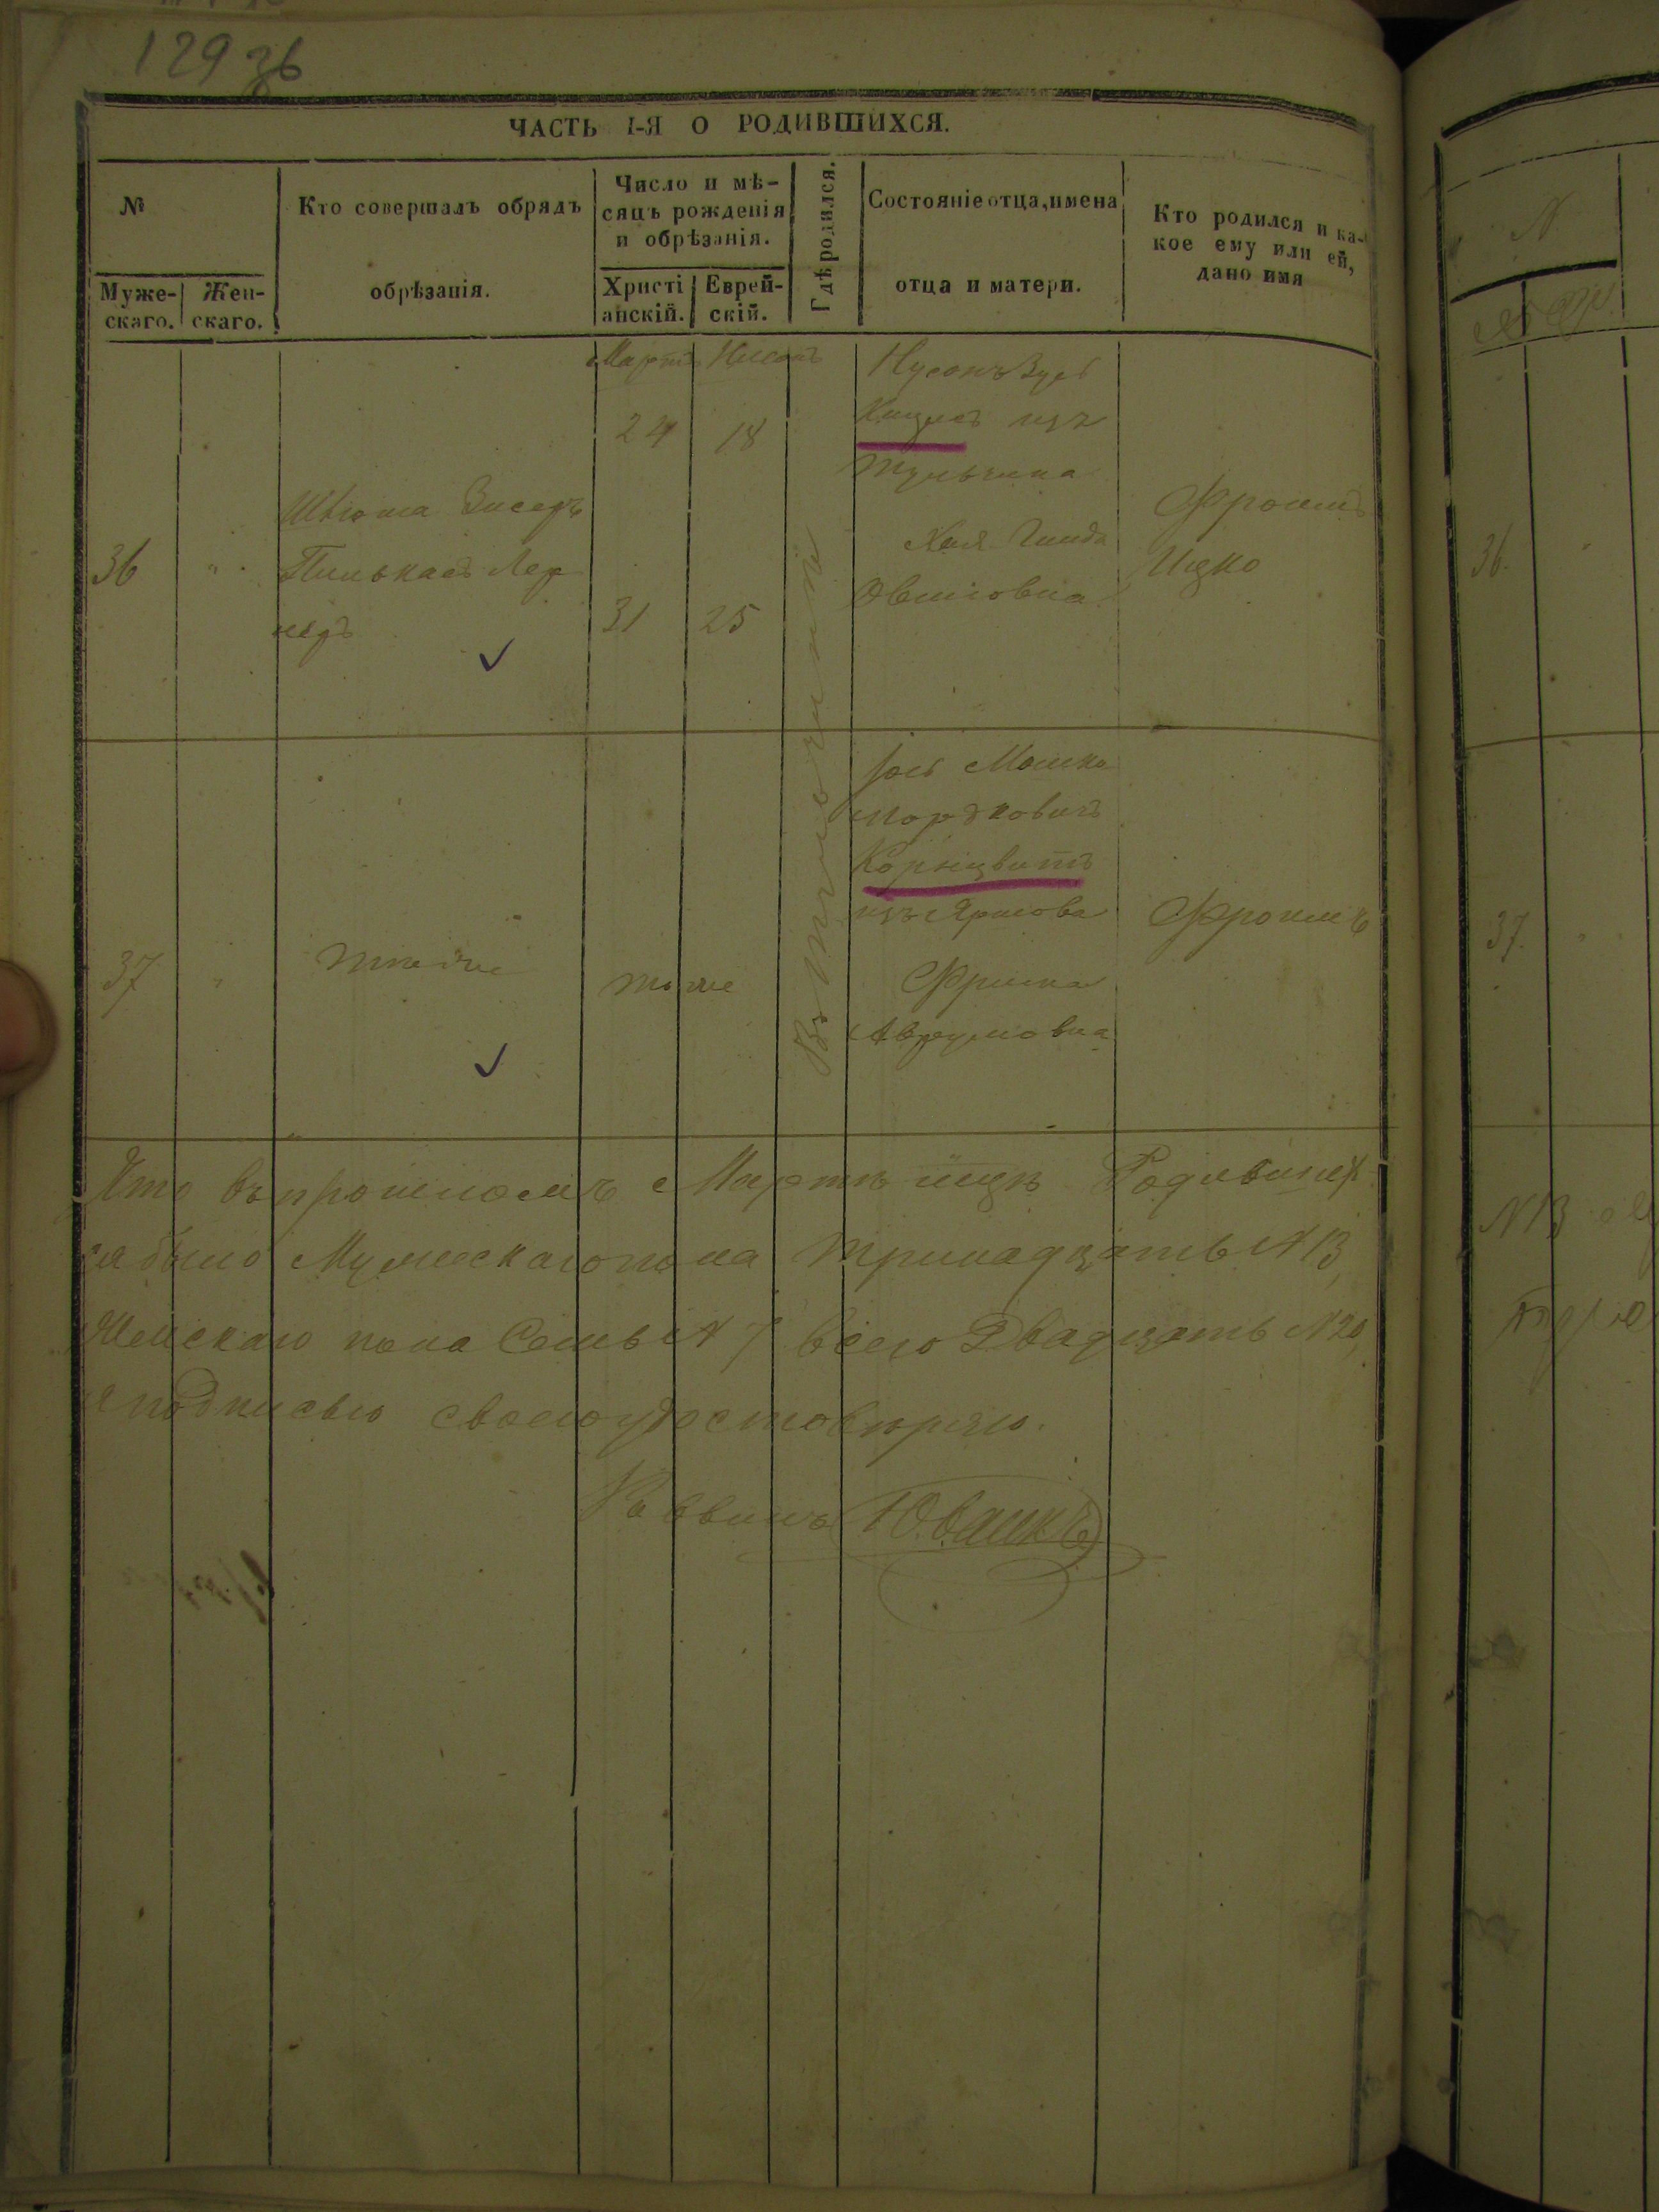 129 зв
ЧАСТЬ I-Я О РОДИВШИХСЯ.
№
Муже-
скаго.
Жен-
скаго.
Кто совершалъ обрядъ
обрѣзанія.
Число и мѣ-
сяцъ рожденія
и обрѣзанія.
Христі
анскій.
Еврей-
скій.
Гдѣ родился.
Состояніе отца, имена
отца и матери.
Кто родился и ка-
кое ему или ей,
дано имя
36
Пинькасъ Лер
неръ
Мартъ
24
31
Нисанъ
18
25
Нусонъ Зусь
изъ
Тульчина
Хая Гинда
Фроимъ
Ицко
37
тѣже
тоже
Мошко
Мордковичъ
Корнцвитъ
изъ
Фрима
Аврумовна
Фроимъ
Что въ прошломъ Мартѣ мцѣ Родивших
ся было Мужескаго пола тринадцать N 13,
Женскаго пола Семь N 7 всего Двадцать N 20,
подписью своею удостовѣряю.
Раввинъ
N
36.
37.
N 13